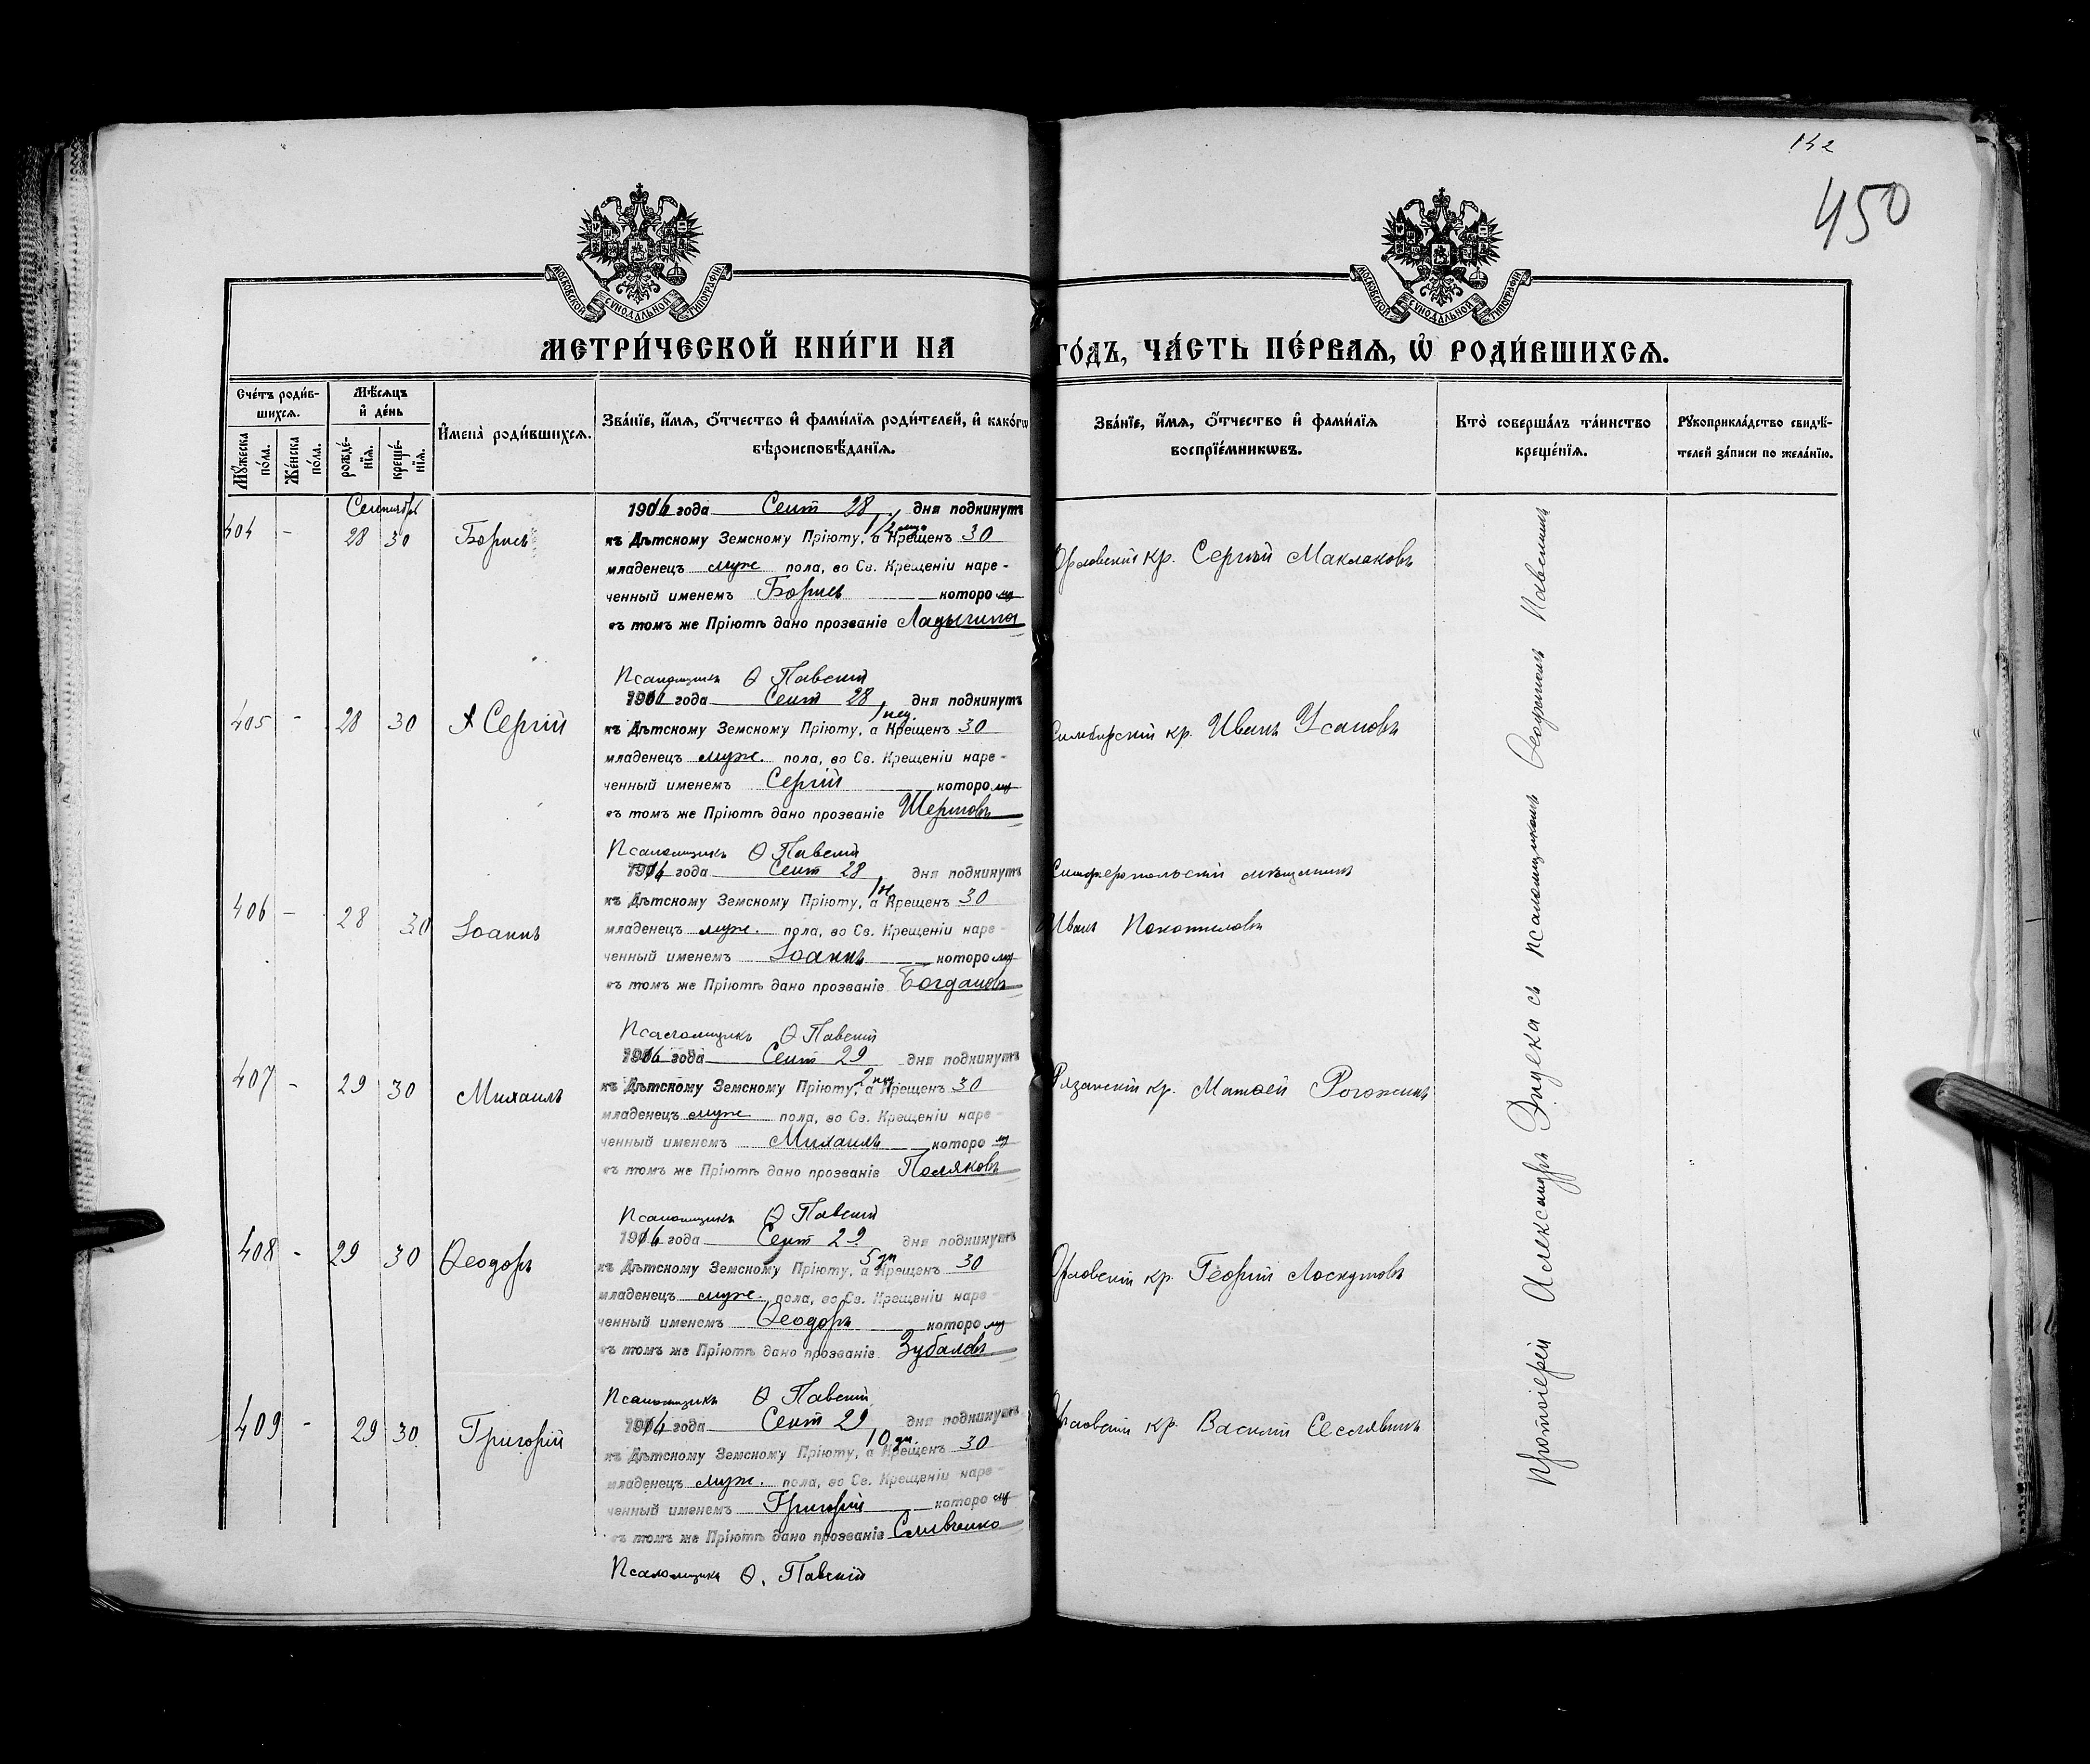 142
450
МОСКОВСКОЙ СѴНОДАЛЬНОЙ ТИПОГРАФІИ
МОСКОВСКОЙ СѴНОДАЛЬНОЙ ТИПОГРАФІИ
МЕТРИ́ЧЕСКОЙ КНИ́ГИ НА ГО́ДЪ, ЧА́СТЬ ПЕ́РВАЯ, Ѡ҆ РОДИ́ВШИХСЯ.
Сче́тъ роди́в-
шихся.
Мꙋ́жеска по́ла.
Же́нска по́ла.
Мѣ́сяцъ
и҆ де́нь
рожде́-нїя.
креще́-нїя.
И҆мена̀ роди́вшихся.
Зва́нїе, и҆́мя, ѻ҆́тчество и҆ фами́лїя роди́телей, и҆ како́гѡ
вѣроисповѣ́данїя.
Зва́нїе, и҆́мя, ѻ҆́тчество и҆ фами́лїя
воспрїе́мникѡвъ.
Кто̀ соверша́лъ та́инство
креще́нїя.
Рꙋкоприкла́дство свидѣ́-
телей за́писи по жела́нїю.
Сентябрь
404 - 28 30 Борисъ
1916 года Сент 28 дня подкинутъ
къ Дѣтскому Земскому Пріюту, а Крещенъ 30
младенецъ муж пола, во Св. Крещеніи наре-
ченный именемъ Борисъ которому
въ томъ же Пріютѣ дано прозваніе Ладыгина
Псаломщикъ Ѳ Павскій
Орловскій кр. Сергѣй Маклаковъ
405 - 28 30 Сергій
года Сент 28 дня подкинутъ
1 нед.
къ Дѣтскому Земскому Пріюту, а Крещенъ 30
младенецъ муж. пола, во Св. Крещеніи наре-
ченный именемъ Сергій которому
въ томъ же Пріютѣ дано прозваніе
Псаломщикъ Ѳ Павскій
Симбирскій кр. Иванъ Усановъ
406 - 28 30 Іоаннъ
1916 года Сент 28 дня подкинутъ
къ Дѣтскому Земскому Пріюту, а Крещенъ 30
младенецъ муж. пола, во Св. Крещеніи наре-
ченный именемъ Іоаннъ которому
въ томъ же Пріютѣ дано прозваніе Богдановъ
Псаломщикъ Ѳ Павскій
Симферопольскій мѣщанинъ
Иванъ
407 - 29 30 Михаилъ
1916 года Сент 29 дня подкинутъ
2 нед
къ Дѣтскому Земскому Пріюту, а Крещенъ 30
младенецъ муж пола, во Св. Крещеніи наре-
ченный именемъ Михаилъ которому
въ томъ же Пріютѣ дано прозваніе Поляковъ
Псаломщикъ Ѳ Павскій
Рязанскій кр. Матѳей Рогожинъ
408 - 29 30 Ѳеодоръ
1916 года Сент 29 дня подкинутъ
5 дн
къ Дѣтскому Земскому Пріюту, а Крещенъ 30
младенецъ муж. пола, во Св. Крещеніи наре-
ченный именемъ Ѳеодоръ которому
въ томъ же Пріютѣ дано прозваніе Зубаловъ
Псаломщикъ Ѳ Павскій
Орловскій кр. Георгій Лоскутовъ
409 - 29 30 Григорій
1916 года Сент 29 дня подкинутъ
10 дн.
къ Дѣтскому Земскому Пріюту, а Крещенъ 30
младенецъ муж. пола, во Св. Крещеніи наре-
ченный именемъ Григорій которому
въ томъ же Пріютѣ дано прозваніе
Псаломщикъ Ѳ. Павскій
Орловскій кр. Василій
Протоіерей Александръ Эндека съ псаломщикомъ Ѳеофиломъ Павскимъ